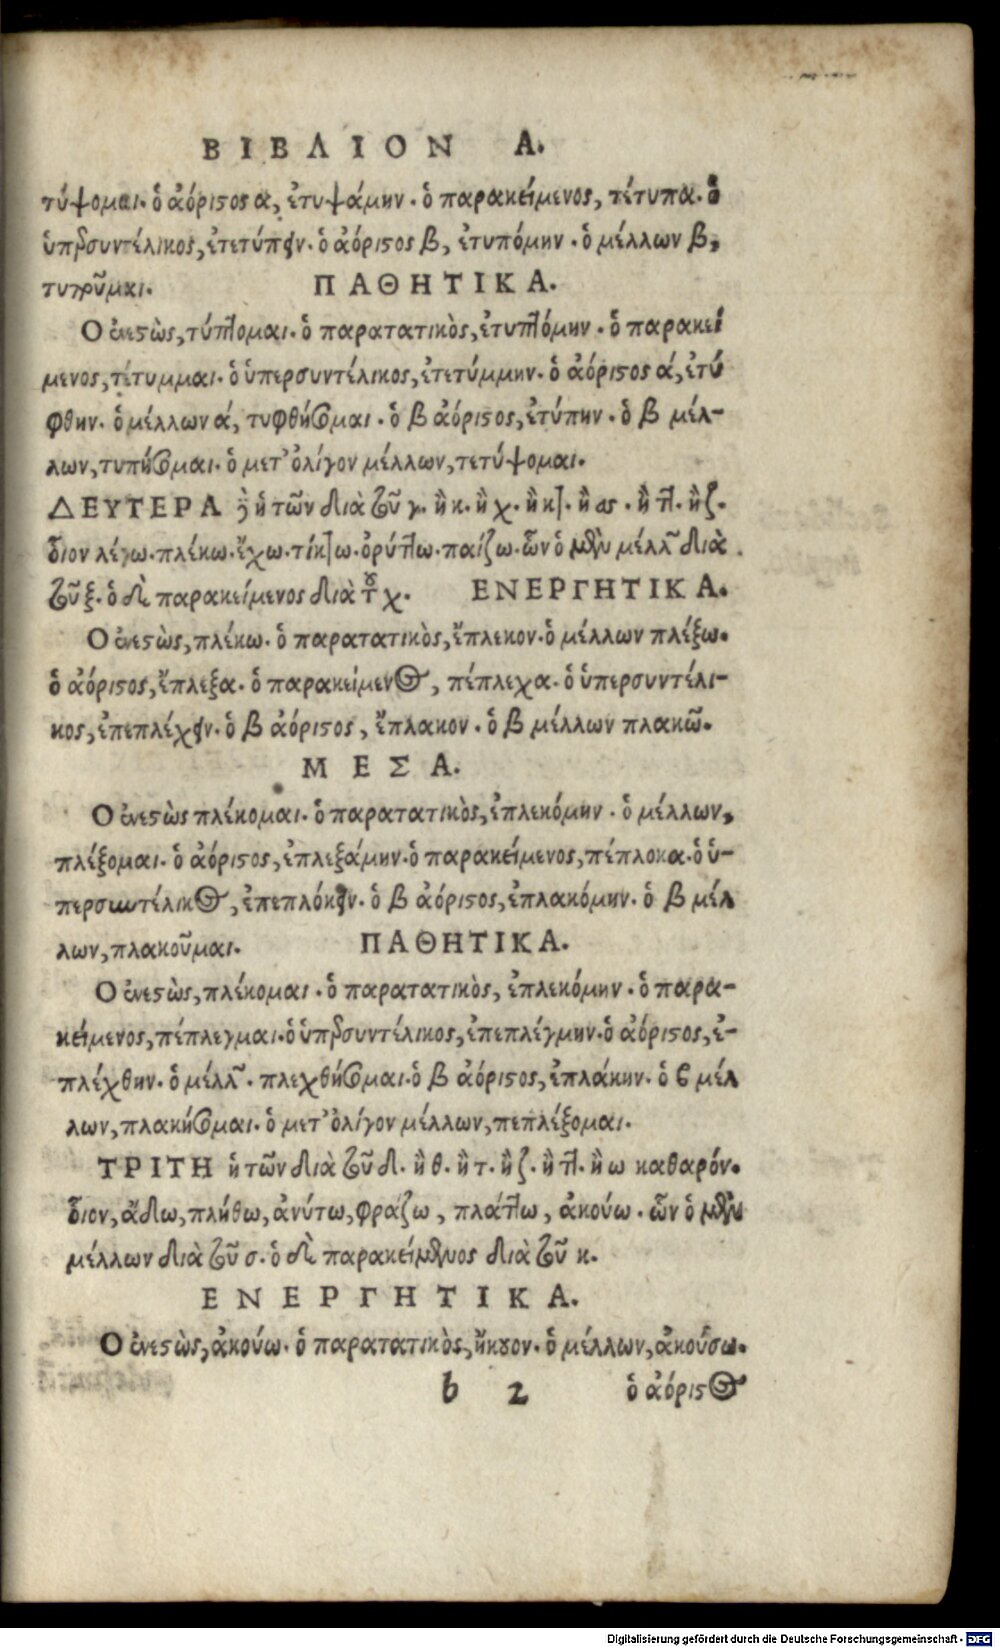 ΒΙΒΛΙΟΝ Α.
τύψομαι. ὁ ἀόριστος α, ἐτυψάμην. ὁ παρακείμενος, τέτυπα. ὁ
ὑπερσυντέλικος, ἐτετύπειν. ὁ ἀόριστος β, ἐτυπόμην. ὁ μέλλων β,
τυποῦμαι. ΠΑΘΗΤΙΚΑ.
Ο ἐνεστὼς, τύπτομαι. ὁ παρατατικὸς, ἐτυπτόμην. ὁ παρακεί
μενος, τέτυμμαι. ὁ ὑπερσυντέλικος, ἐτετύμμην. ὁ ἀόριστος ά, ἐτύ
φθην. ὁ μέλλων ά, τυφθήσομαι. ὁ β ἀόριστος, ἐτύπην. ὁ β μέλ-
λων, τυπήσομαι. ὁ μετ' ὀλίγον μέλλων, τετύψομαι.
ΔΕΥΤΕΡΑ δὲ ἡ τῶν διὰ τοῦ γ. ἢ κ. ἢ χ. ἢ κτ. ἢ σσ. ἢ ττ. ἢ ζ.
οἷον λέγω. πλέκω. ἔχω. τίκτω. ὀρύττω. παίζω. ὧν ὁ μὲν μέλλ~ διὰ
τοῦ ξ. ὁ δὲ παρακείμενος διὰ τοῦ χ. ΕΝΕΡΓΗΤΙΚΑ.
Ο ἐνεστὼς, πλέκω. ὁ παρατατικὸς, ἔπλεκον. ὁ μέλλων πλέξω.
ὁ ἀόριστος, ἔπλεξα. ὁ παρακείμενος, πέπλεχα. ὁ ὑπερσυντέλι-
κος, ἐπεπλέχειν. ὁ β ἀόριστος, ἔπλακον. ὁ β μέλλων πλακῶ.
ΜΕΣΑ.
Ο ἐνεστὼς πλέκομαι. ὁ παρατατικὸς, ἐπλεκόμην. ὁ μέλλων,
πλέξομαι. ὁ ἀόριστος, ἐπλεξάμην. ὁ παρακείμενος, πέπλοκα. ὁ ὑ-
περσυντέλικος, ἐπεπλόκειν. ὁ β ἀόριστος, ἐπλακόμην. ὁ β μέλ
λων, πλακοῦμαι. ΠΑΘΗΤΙΚΑ.
Ο ἐνεστὼς, πλέκομαι. ὁ παρατατικὸς, ἐπλεκόμην. ὁ παρα-
κείμενος, πέπλεγμαι. ὁ ὑπερσυντέλικος, ἐπεπλέγμην. ὁ ἀόριστος, ἐ-
πλέχθην. ὁ μέλλ~. πλεχθήσομαι. ὁ β ἀόριστος, ἐπλάκην. ὁ ϐ μέλ
λων, πλακήσομαι. ὁ μετ' ὀλίγον μέλλων, πεπλέξομαι.
ΤΡΙΤΗ ἡ τῶν διὰ τοῦ δ. ἢ θ. ἢ τ. ἢ ζ. ἢ ττ. ἢ ω καθαρόν.
οἷον, ἄδω, πλήθω, ἀνύτω, φράζω, πλάττω, ἀκούω. ὧν ὁ μὲν
μέλλων διὰ τοῦ σ. ὁ δὲ παρακείμενος διὰ τοῦ κ.
ΕΝΕΡΓΗΤΙΚΑ.
Ο ἐνεστὼς, ἀκούω. ὁ παρατατικὸς, ἤκουον. ὁ μέλλων, ἀκούσω.
b 2 ὁ ἀόριστος
Digitalisierung gefördert durch die Deutsche Forschungsgemeinschaft - DFG